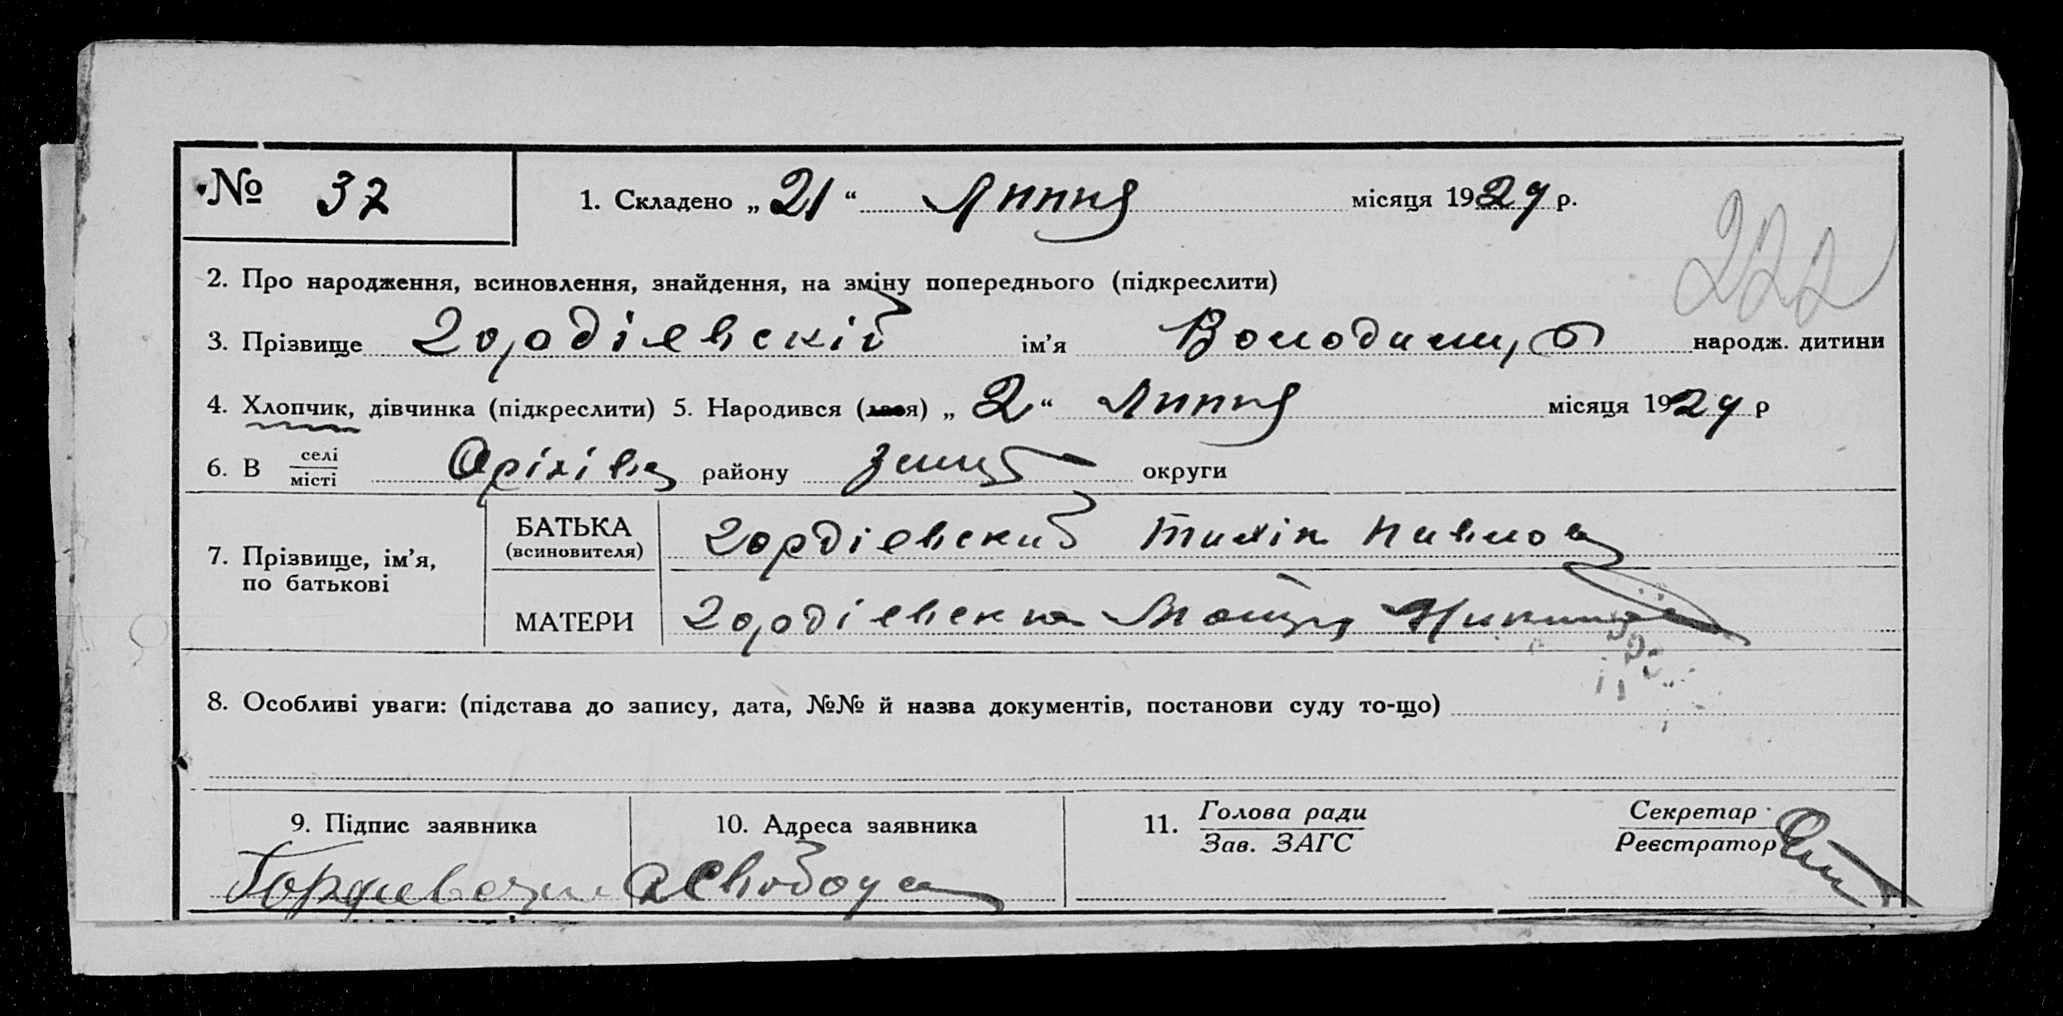 № 37 1. Складено „21“ Липня місяця 1929 р.
222
2. Про народження, всиновлення, знайдення, на зміну попереднього (підкреслити)
3. Прізвище Гордіевскій ім’я Володимир народж. дитини
4. Хлопчик, дівчинка (підкреслити) 5. Народився (лася) „2“ Липня місяця 1929 р
6. В селі
місті району округи
7. Прізвище, ім’я,
по батькові
БАТЬКА
(всиновителя)
Гордіевский Павлов
МАТЕРИ
Гордіевска
8. Особливі уваги: (підстава до запису, дата, №№ й назва документів, постанови суду то-що)
9. Підпис заявника 10. Адреса заявника 11. Голова ради
Зав. ЗАГС
Секретар
Реєстратор